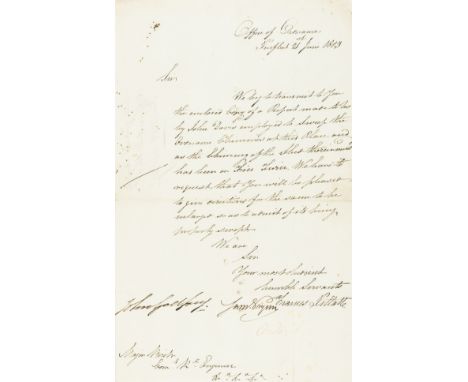 Office of Ordnance
Purfleet 21st June 1813
Sir
We beg to transmit to You
the enclosed Copy of a Report made to Us
by John Davis employed to Sweep the
Ordnance Chimnies at this Place and
as the Chimney of the Clerk
has been on Fire We have to
request that You will be pleased
to give directions for the same to be
enlarged so as to admit of its being
properly swept.
We are
Sir
Your most Obedient
humble Servants
Francis
Major
Engineer